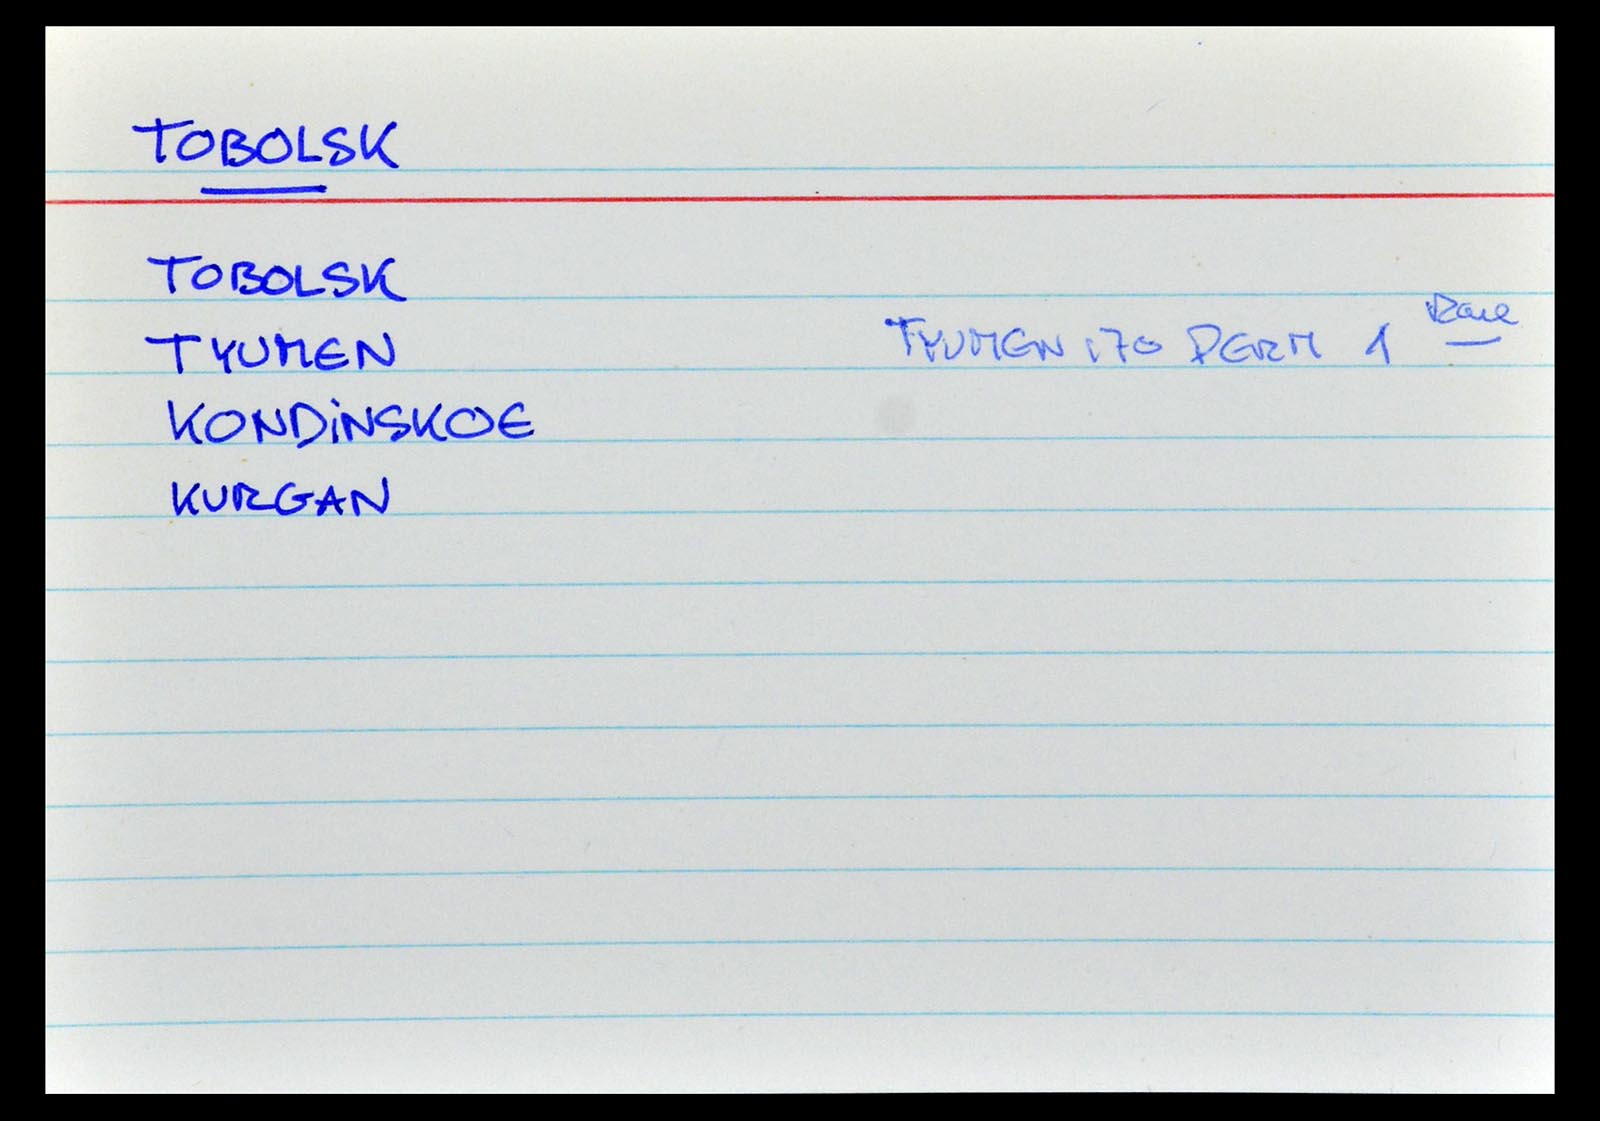 TOBOLSK
TOBOLSK
TYUMEN TYUMEN 170 PERM 1 Rare
KONDINSKOE
KURGAN